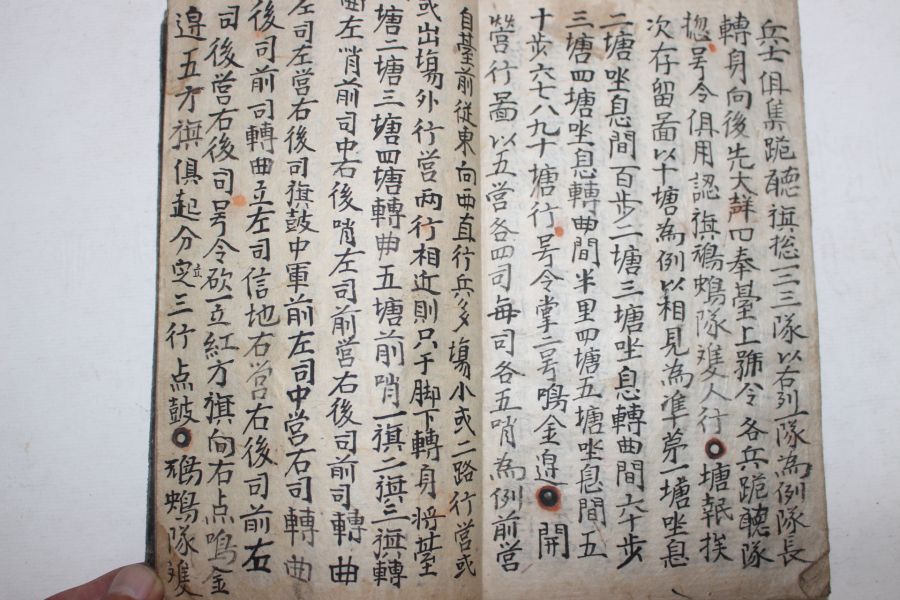 兵士俱集跪聽旗摠一二三隊以右列一隊為例隊長
轉身向後先大群口奉臺上號令各兵跪聽隊
摠号令俱用認旗鴉隊隻人行塘報挨
次存留啚以十塘為例以相見為准第一塘坐息
二塘坐息間百步二塘三塘坐息轉曲間六十步
三塘四塘坐息轉曲間半里四塘五塘坐息間五
十步六七八九十塘行号令掌二号鳴金邉開
營行啚以五營各四司每司各五哨為例前營
自臺前從東向西直行兵多塲小或二路行營或
或出塲外行營兩行相近則只于脚下轉身將臺
塘二塘三塘四塘轉曲五塘前哨一旗二旗三旗轉
曲左哨前司中右後哨左司前營右後司前司轉曲
左司左營右後司旗鼓中軍前左司中營右司轉曲
後司前司轉曲立左司信地右營右後司前右
司後營右後司号令砍一立紅方旗向右点鳴金
邉五方旗俱起分定立三行点鼓鴉隊隻